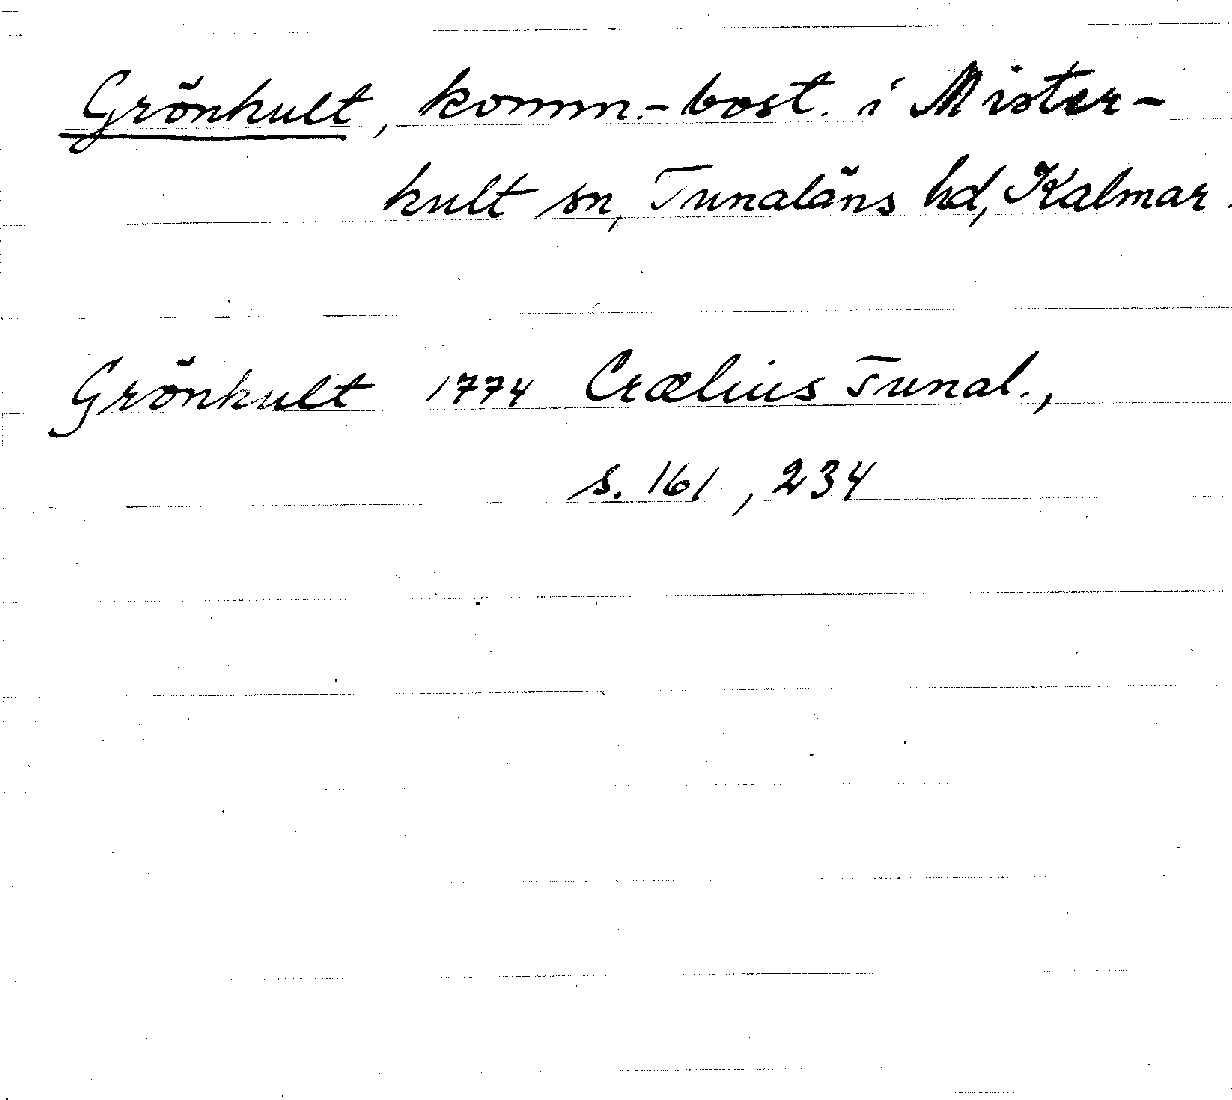 Grönhult, komm.-bost. i Mister-
hult sn, Tunaläns hd, Kalmar
Grönhult 1774 Crælius Tunal.,
s. 161, 234